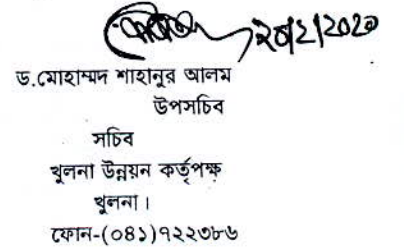 ড.মোহাম্মদ শাহানুর আলম
উপসচিব
সচিব
খুলনা উন্নয়ন কর্তৃপক্ষ
খুলনা।
ফোন-(০৪১)৭২২৩৮৬